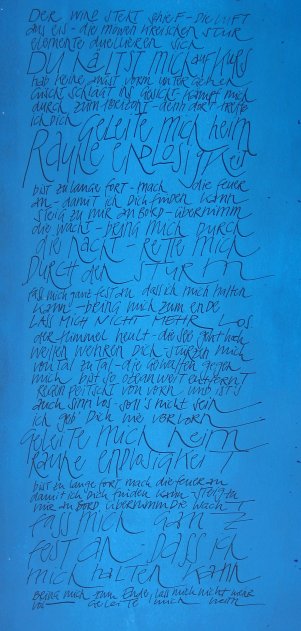 DER WIND STEHT SCHIEF - DIE LUFT
aus eis - die möwen kreischen STUR
elemente duellieren sich
DU hältst mich auf kurs
hab keine angst vorm untergehen
Gischt schlägt ins Gesicht kämpf mich
durch zum Horizont - denn dort treffe
ich Dich Geleite mich heim
Rauhe Endlosigkeit
bist zu lange fort - mach die feuer
an - damit ich Dich finden kann
steig zu mir an Bord - übernimm
die wacht - bring mich durch
die nacht - rette mich
Durch den Sturm
fass mich ganz fest an dass ich mich halten
kann - bring mich zum ende
LASS MICH NICHT MEHR LOS
der Himmel heult - die See geht hoch
wellen wehren Dich - stürzen mich
von tal zu tal - die Gewalten gegen
mich bist so ozeanweit entfernt
Regen peitscht von vorn und ist's
auch sinnlos - soll's nicht sein
ich geb' Dich nie verlorn
Geleite mich heim
Rauhe Endlosigkeit
bist zu lange fort mach die feuer an
damit ich Dich finden kann steig zu
mir an Bord übernimm die wacht
fass mich ganz
fest an - dass ich
mich halten kann
bring mich zum Ende, lass mich nicht mehr
los Geleite mich heim